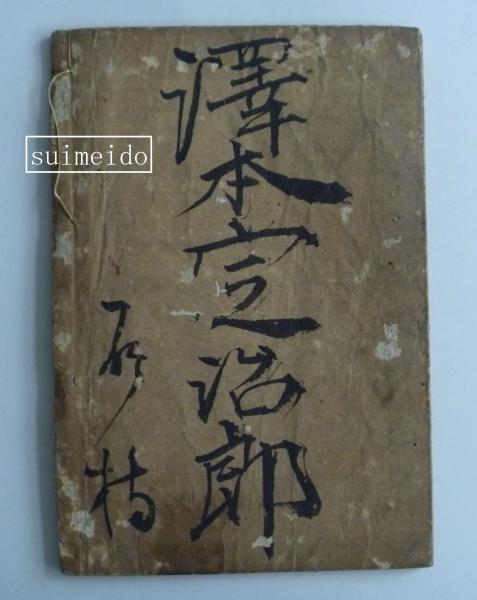 澤本定治郎
所持
suimeido